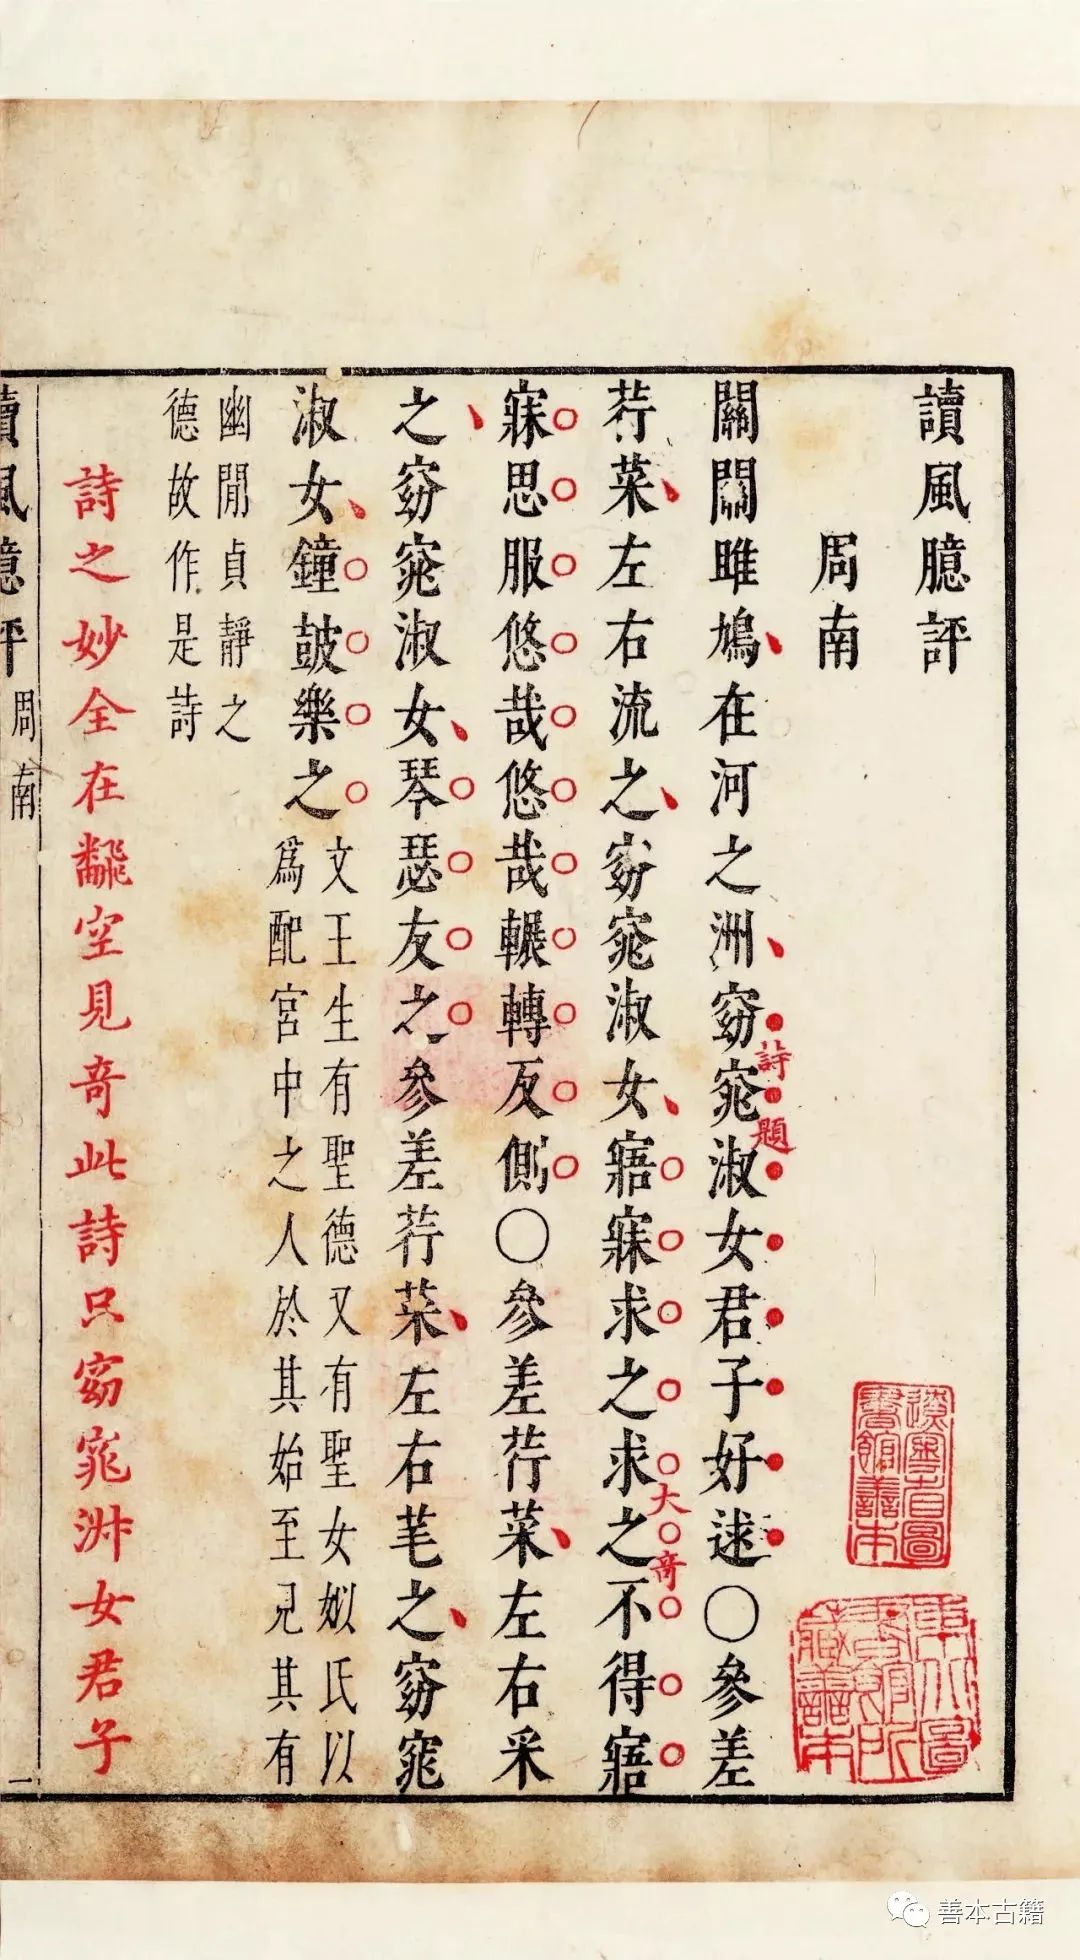 讀風臆評
周南
關關雎鳩在河之洲窈窕淑女君子好逑〇參差
詩題
荇菜左右流之窈窕淑女寤寐求之求之不得寤
大奇
寐思服悠哉悠哉輾轉反側〇參差荇菜左右采
之窈窕淑女琴瑟友之參差荇菜左右芼之窈窕
淑女鐘鼓樂之
文王生有聖德又有聖女姒氏以
爲配宮中之人於其始至見其有
幽閒貞靜之
德故作是詩
詩之妙全在翻空見奇此詩只窈窕淑女君子
讀風臆評
周南
一
東北圖
書館所
藏善本
善本古籍